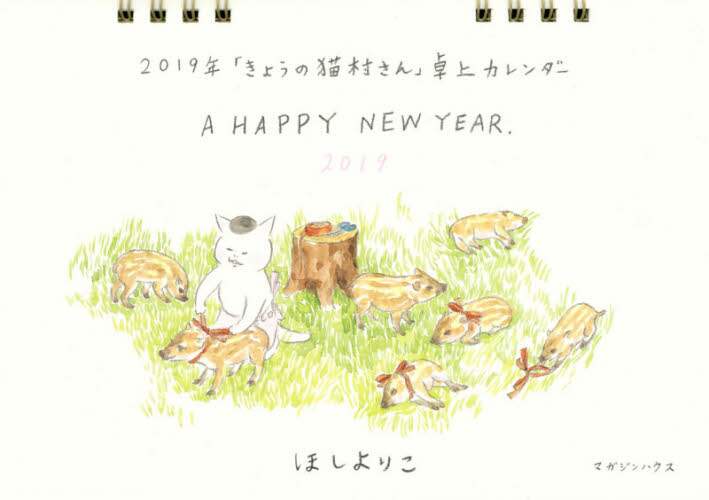 2019年「きょうの猫村さん」卓上カレンダー
A HAPPY NEW YEAR.
2019
ほしよりこ
マガジンハウス